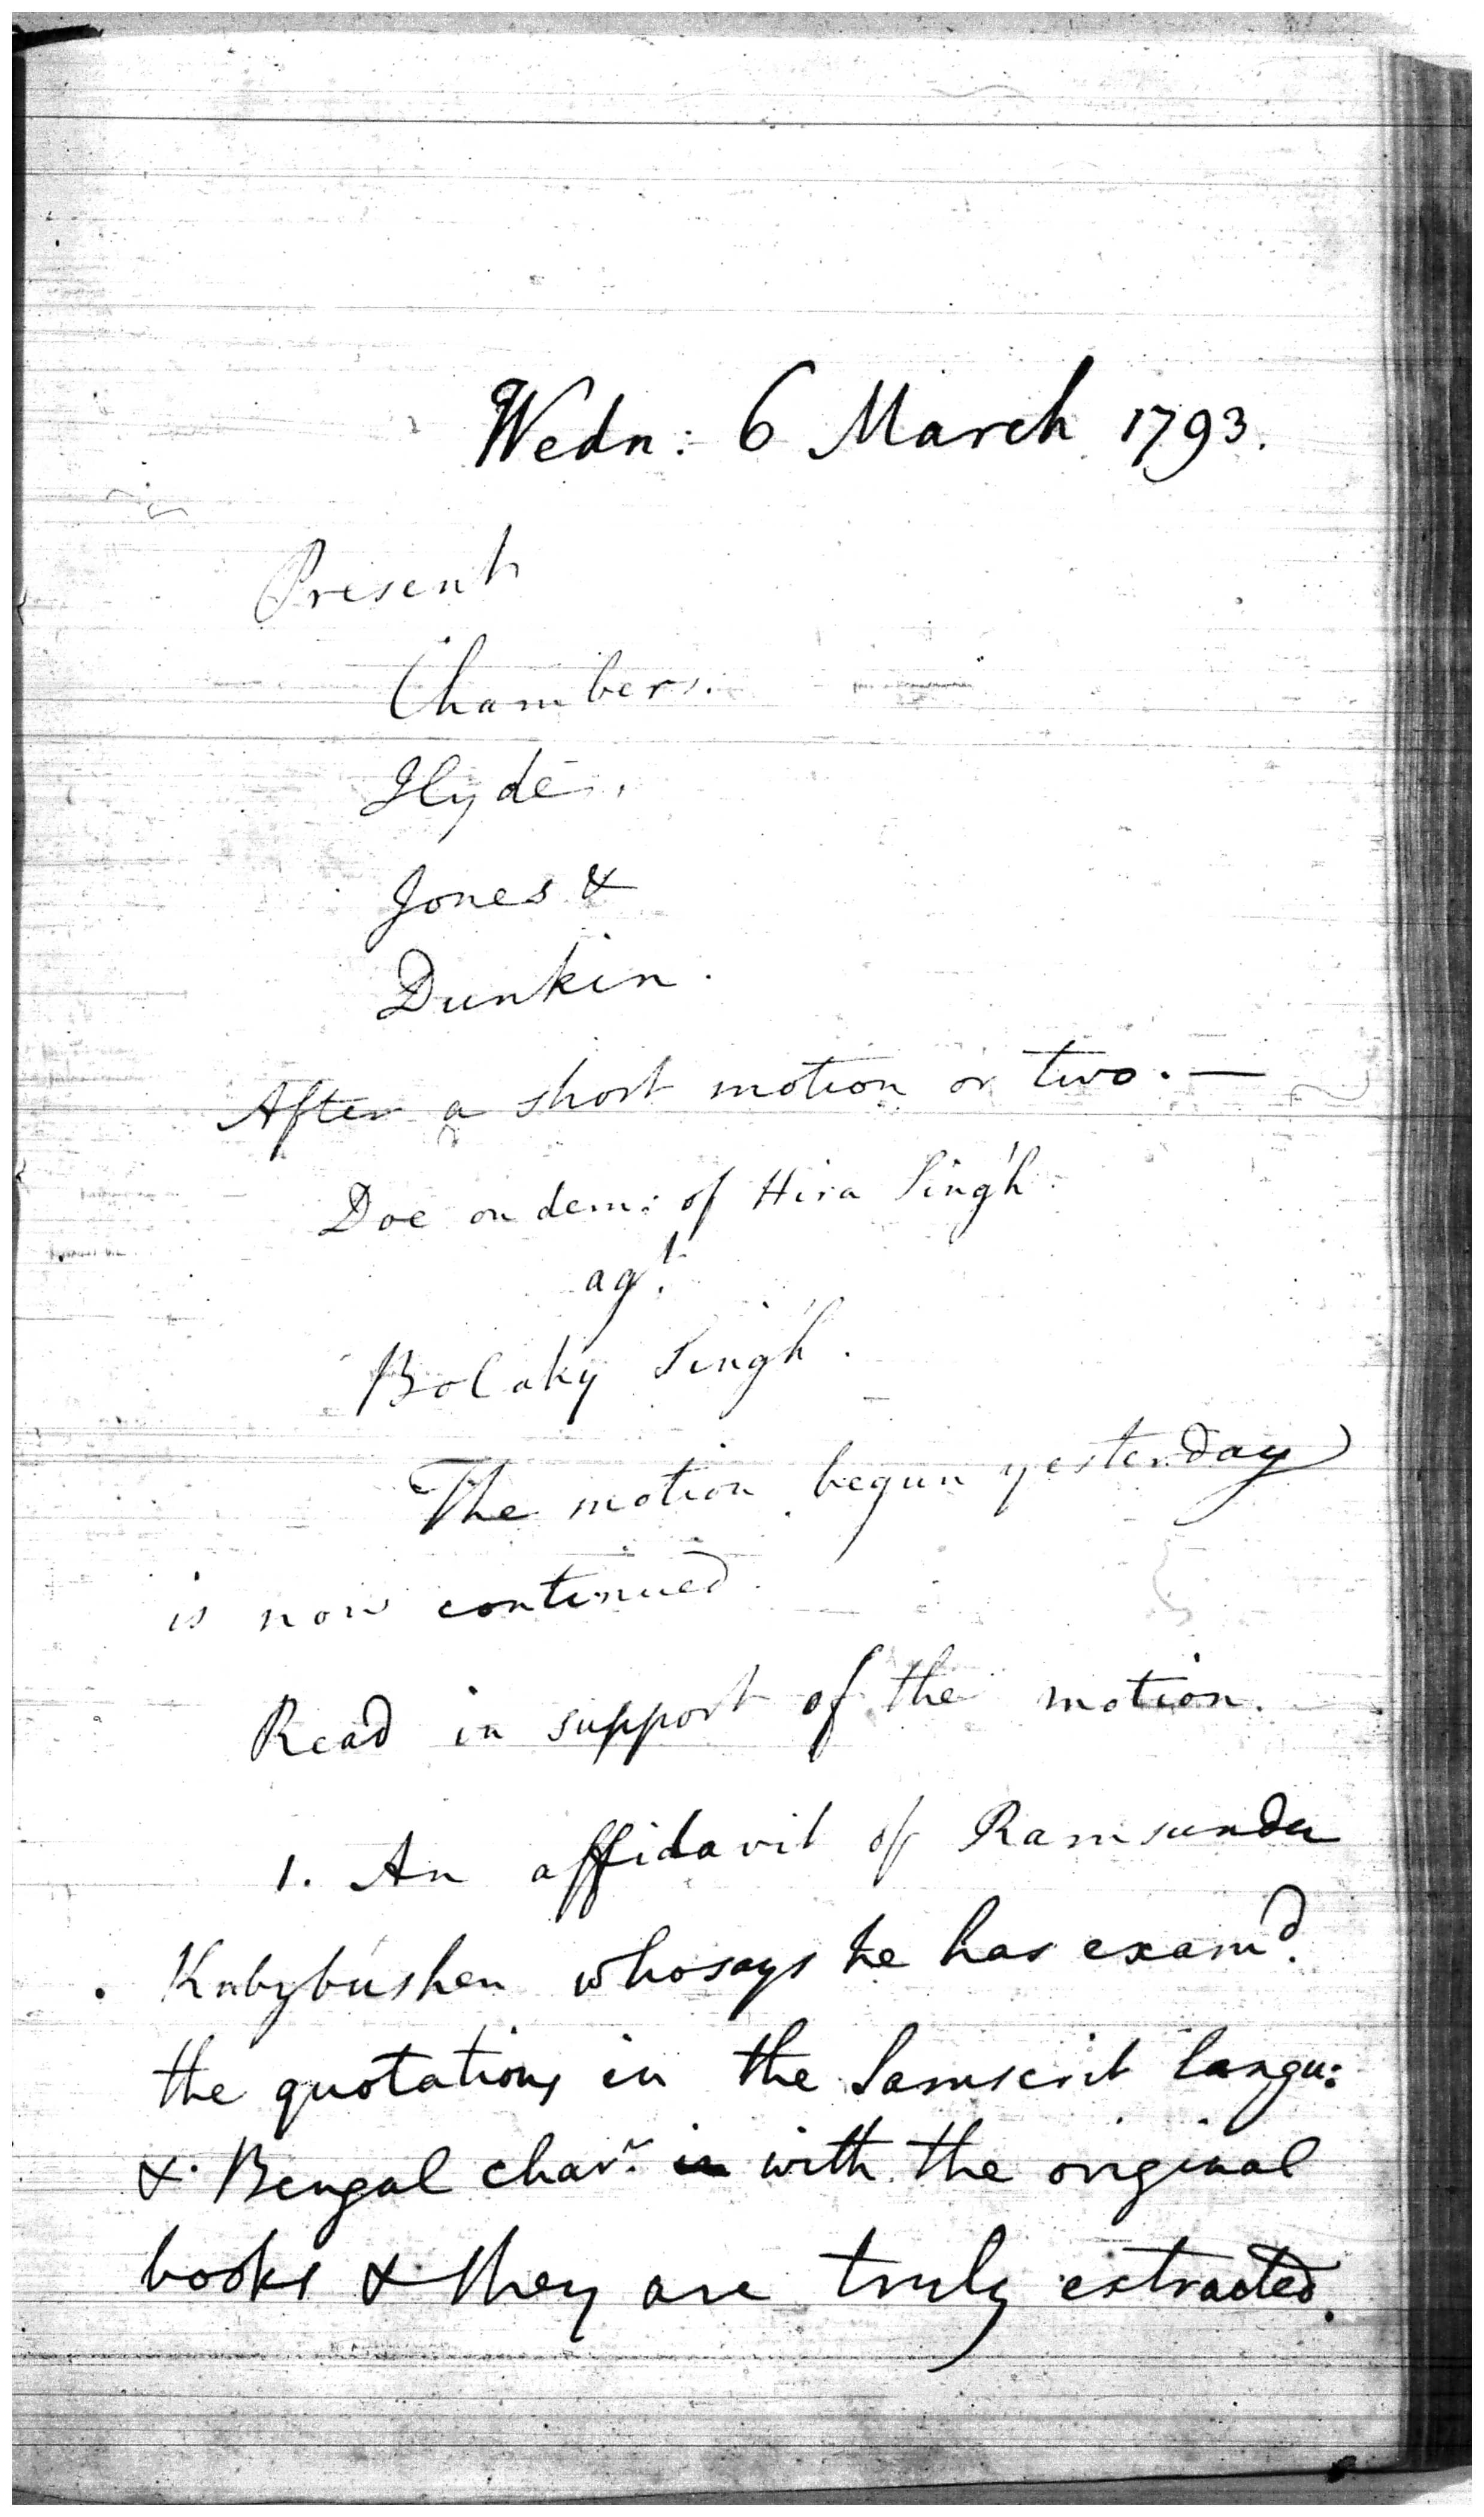 Wedn: 6 March 1793.
Present
Chambers.
Hyde.
Jones &
Dunkin.
After a short motion or two. —
Doe on dem: of Hira Singh
agt.
Bolaky Singh.
The motion begun yesterday
is now continued
Read in support of the motion.
1. An affidavit of Ramsunder
Kabybushen who says he has examd.
the quotations in the Samscrit langu:
& Bengal charr. in with the original
books & they are truly extracted.